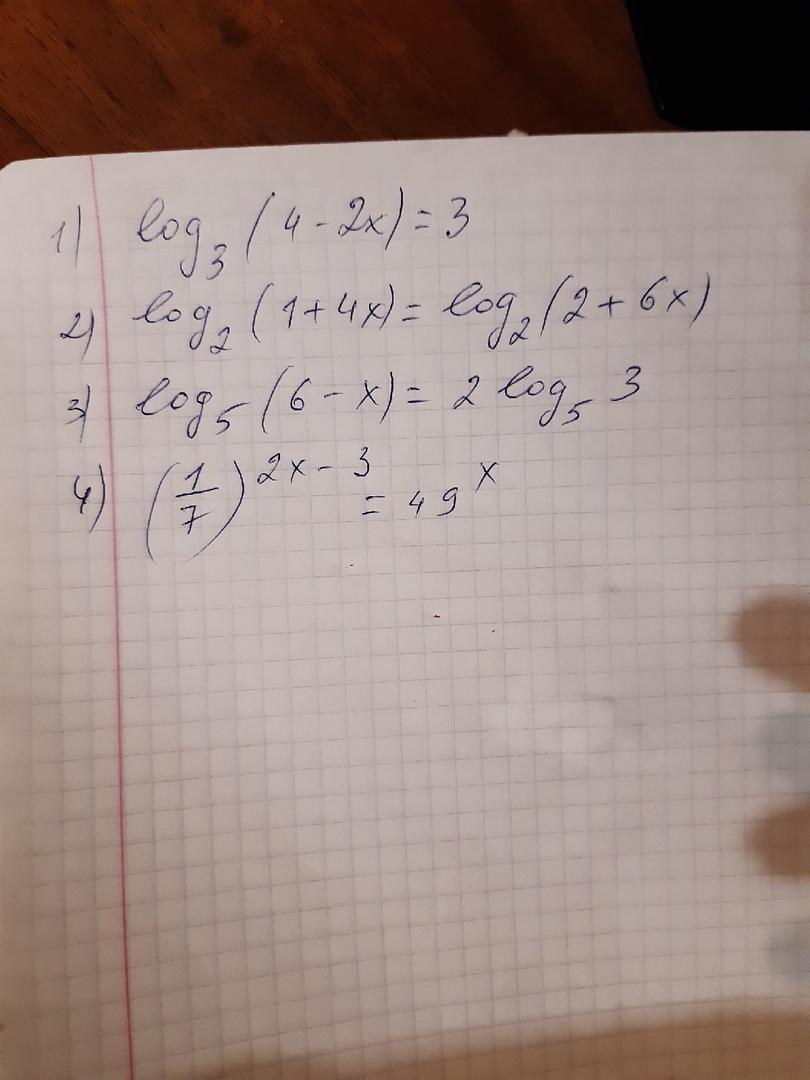 1) log₃(4-2x)=3
2) log₂(1+4x)=log₂(2+6x)
3) log₅(6-x)=2 log₅ 3
4) (1/7)^(2x-3) = 49^x